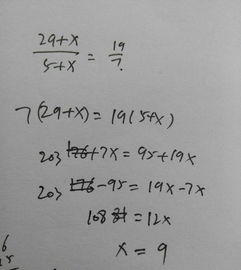 29+x / 5+x = 19 / 7
7(29+x) = 19(5+x)
203 176+7x = 95+19x
203 176-95 = 19x-7x
108 = 12x
x = 9
6